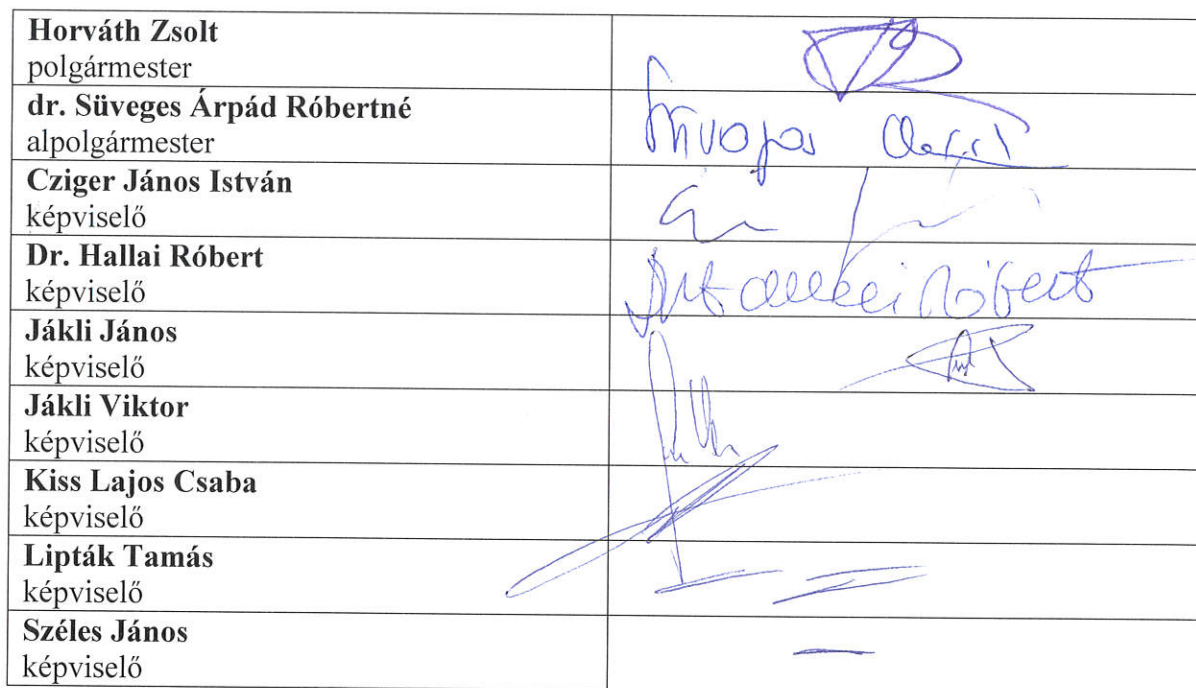 Horváth Zsolt
polgármester
dr. Süveges Árpád Róbertné
alpolgármester
Cziger János István
képviselő
Dr. Hallai Róbert
képviselő
Róbert
Jákli János
képviselő
Jákli Viktor
képviselő
Kiss Lajos Csaba
képviselő
Lipták Tamás
képviselő
Széles János
képviselő